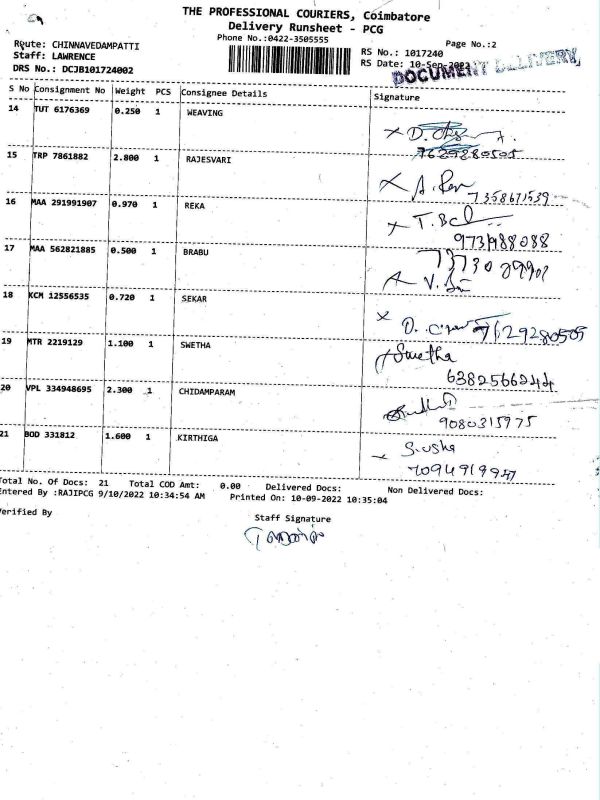 THE PROFESSIONAL COURIERS, Coimbatore
Delivery Runsheet - PCG
Phone No.:0422-3505555
Page No.:2
Route: CHINNAVEDAMPATTI
RS No.: 1017240
Staff: LAWRENCE
RS Date: 10-Sep-2022
DRS No.: DCJB101724002
DOCUMENT DELIVERY
S No Consignment No Weight PCS Consignee Details Signature
14 TUT 6176369 0.250 1 WEAVING
7629280505
15 TRP 7861882 2.800 1 RAJESVARI
7358671539
16 MAA 291991907 0.970 1 REKA
17 MAA 562821885 0.500 1 BRABU
18 KCM 12556535 0.720 1 SEKAR
7629280505
19 MTR 2219129 1.100 1 SWETHA
Swetha
6382566244
20 VPL 334948695 2.300 1 CHIDAMPARAM
9080315975
21 BOD 331812 1.600 1 KIRTHIGA
S.usha
Total No. Of Docs: 21 Total COD Amt: 0.00 Delivered Docs: Non Delivered Docs:
Entered By :RAJIPCG 9/10/2022 10:34:54 AM Printed On: 10-09-2022 10:35:04
Verified By
Staff Signature